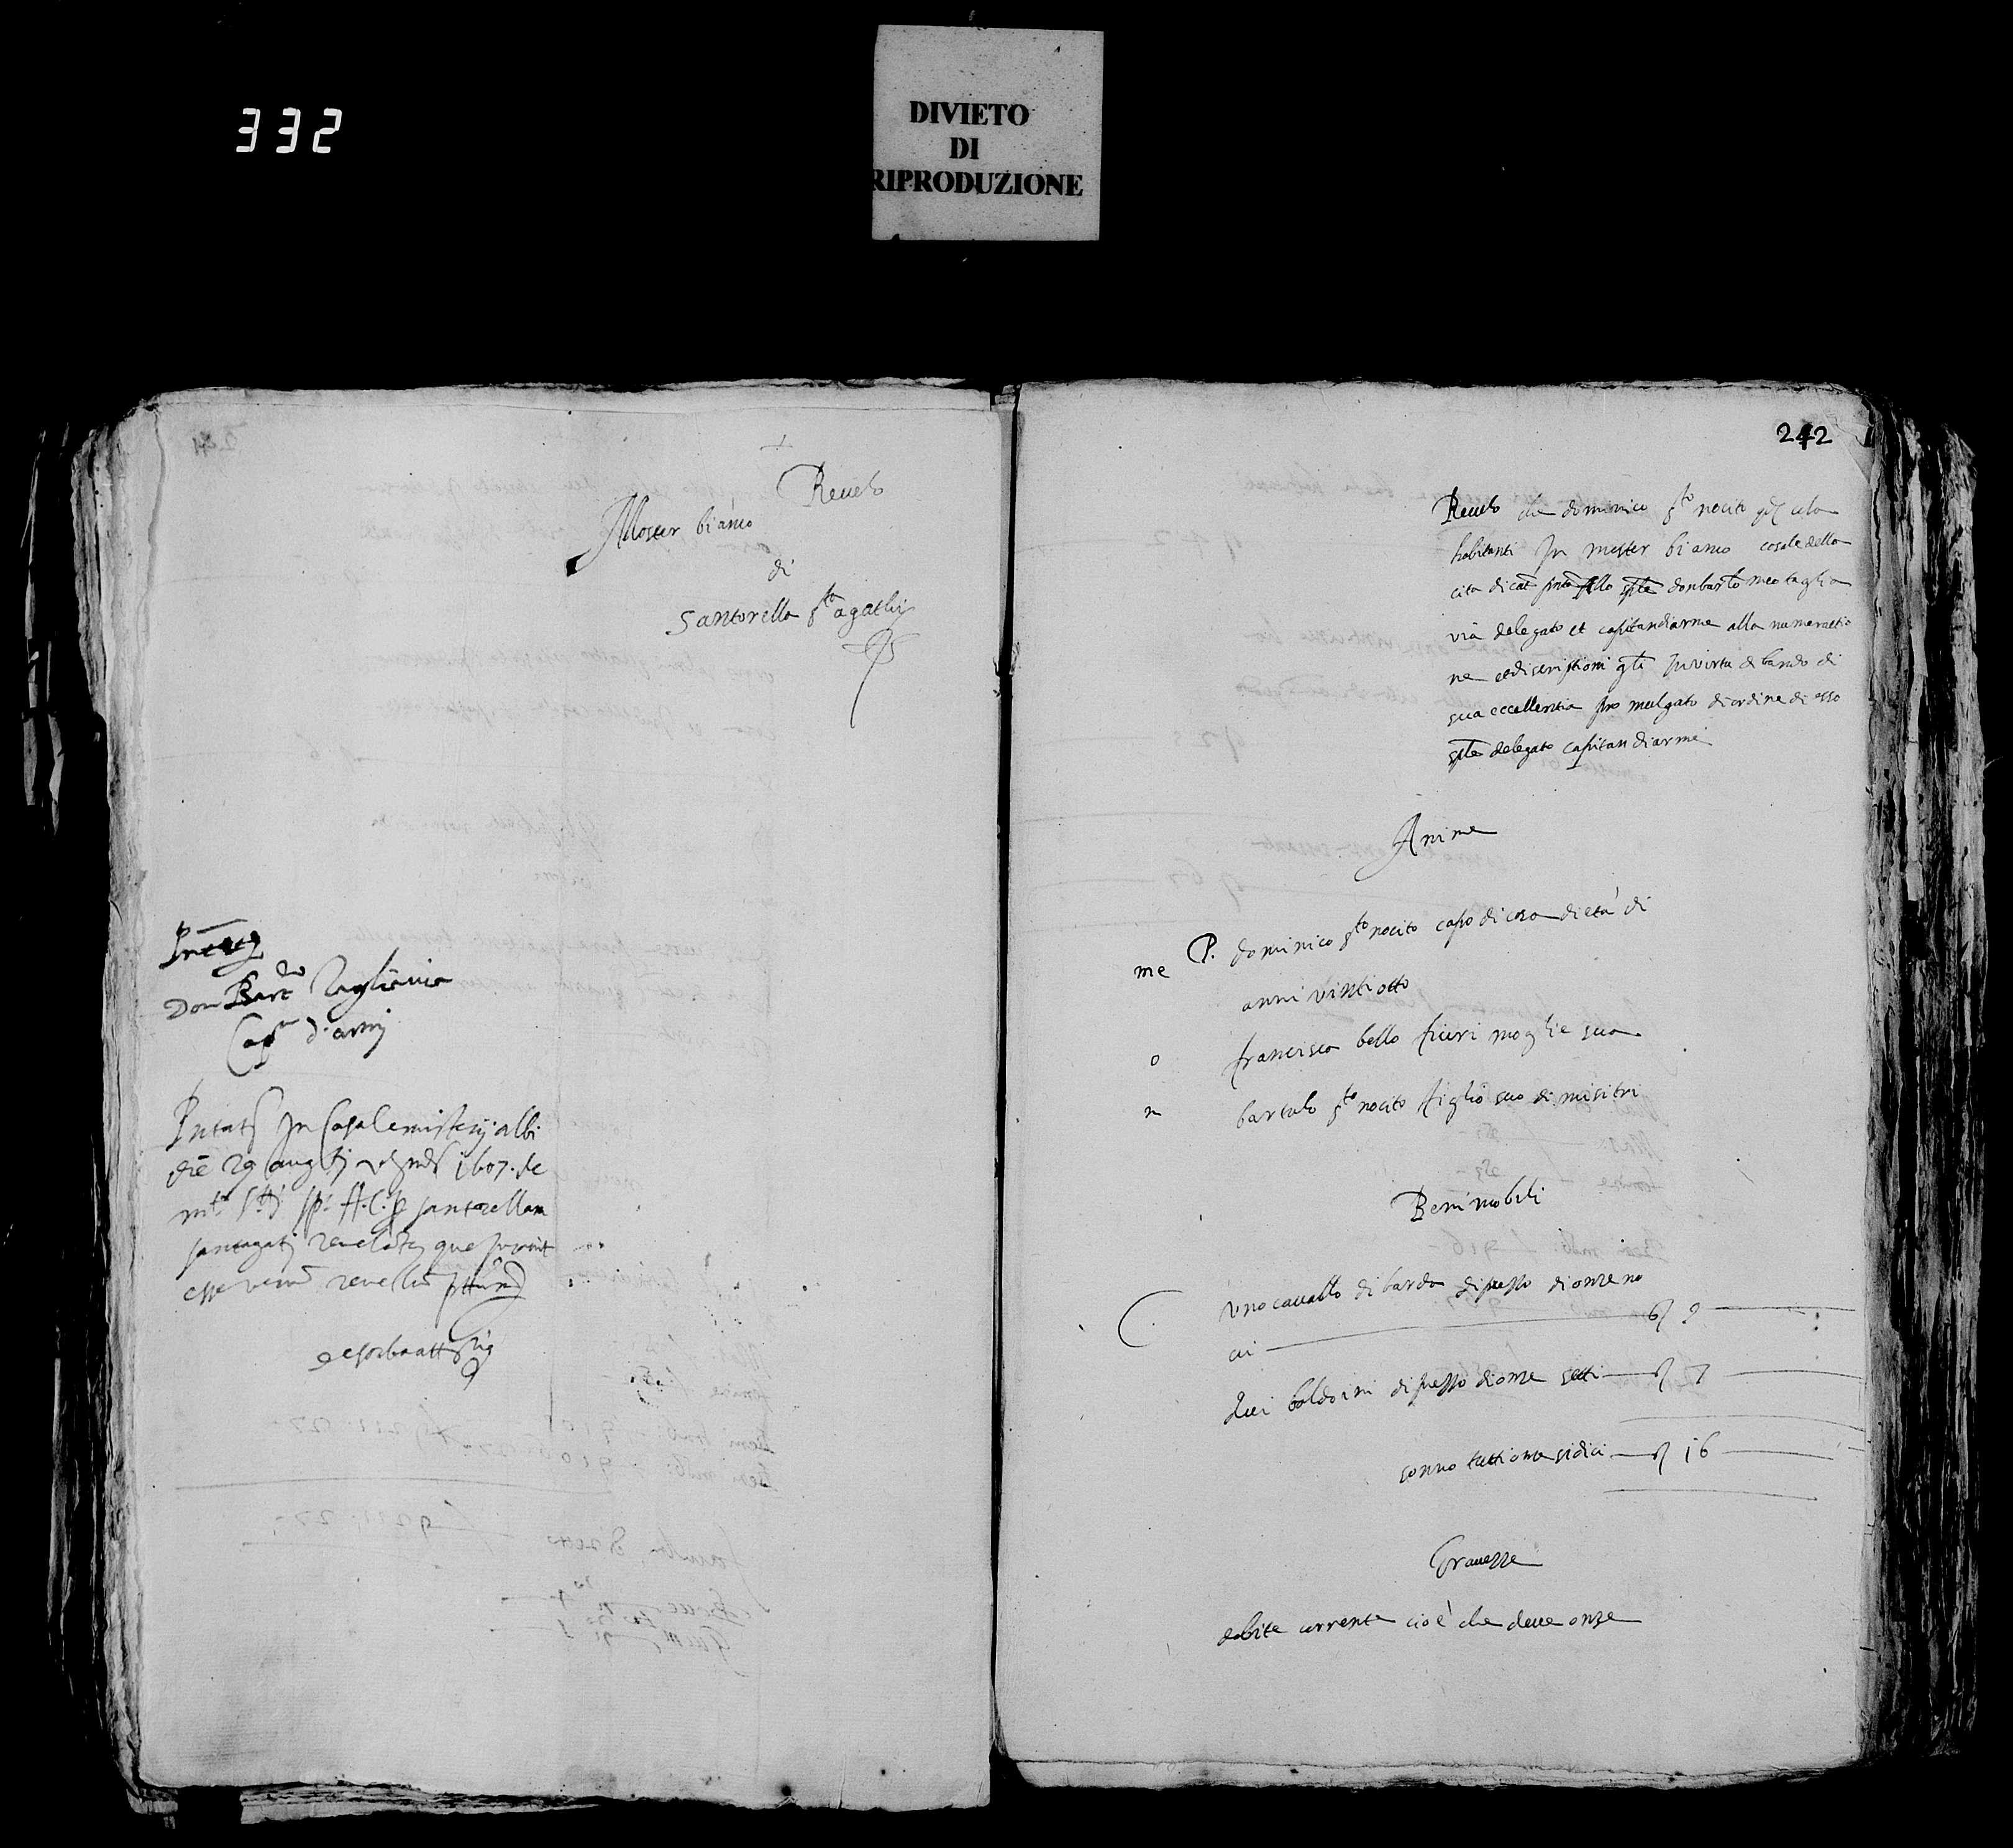 332
DIVIETO
DI
RIPRODUZIONE
Revelo
Moster bianco
di
Santorella sto agathi
Don Bartto Tagliavia
Capn d'armi
In Casale misterij albi
die 29 augti 1607. de
santorellam
santagati revelatis que
esse verum revelum
242
Revelo che dominico sto nocito
habitanti In mester bianco casale della
cita di cat sple don bartolomeo taglia
via delegato et capitandiarme alla numeratio
ne ediscriptioni In virtu di bando di
sua eccellentia pro mulgato di ordine di esso
sple delegato capitan diarme
Anime
me P. dominico sto nocito capo di casa di età di
anni vinti otto
o francisca bello fiuri moglie sua
n bartulo sto nocito figlio suo di misi tri
Beni mobili
uno cavallo di barda di prezzo di onze no
vi 9
dui baldoini di prezzo di onze setti 7
sonno tutti onze sidici 16
Gravezze
debite currente cio è che deve onze